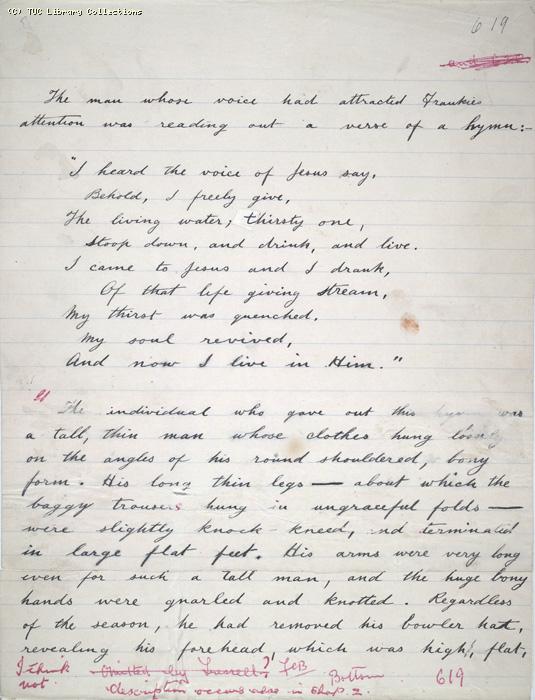 (C) TUC Library Collections
619
The man whose voice had attracted Frankies
attention was reading out a verse of a hymn:-
"I heard the voice of Jesus say,
Behold, I freely give,
The living water; thirsty one,
Stoop down, and drink, and live.
I came to Jesus and I drank,
Of that life giving stream,
My thirst was quenched.
My soul revived,
And now I live in Him."
The individual who gave out this hymn was
a tall, thin man whose clothes hung loosely
on the angles of his round shouldered, bony
form. His long thin legs — about which the
baggy trousers hung in ungraceful folds —
were slightly knock-kneed, and terminated
in large flat feet. His arms were very long
even for such a tall man, and the huge bony
hands were gnarled and knotted. Regardless
of the season, he had removed his bowler hat,
revealing his forehead, which was high, flat,
I think Omitted by Tressell? FCB Bottom 619
not. description occurs also in Chap. 2.